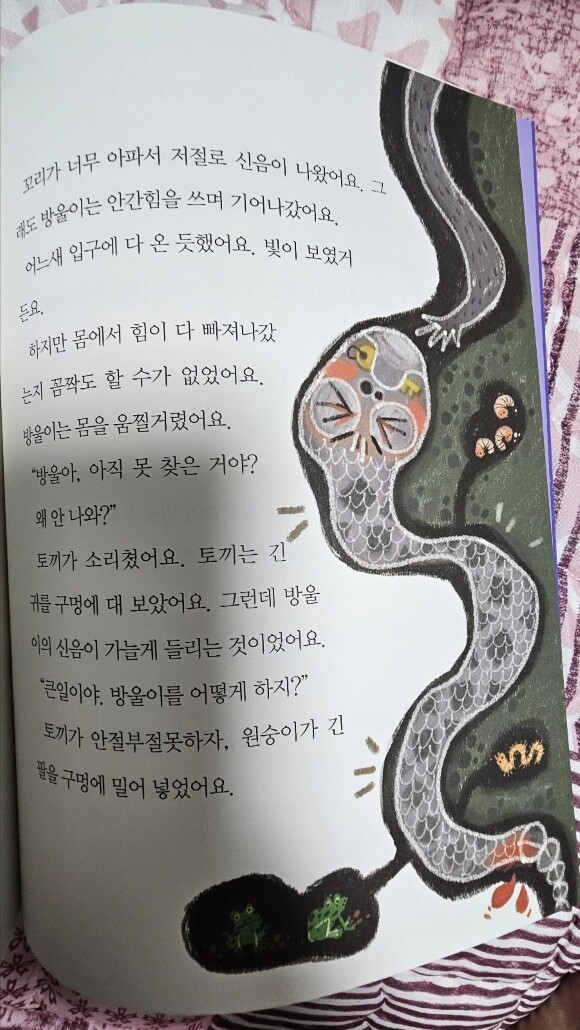 꼬리가 너무 아파서 저절로 신음이 나왔어요. 그
래도 방울이는 안간힘을 쓰며 기어나갔어요.
어느새 입구에 다 온 듯했어요. 빛이 보였거
든요.
하지만 몸에서 힘이 다 빠져나갔
는지 꼼짝도 할 수가 없었어요.
방울이는 몸을 움찔거렸어요.
“방울아, 아직 못 찾은 거야?
왜 안 나와?”
토끼가 소리쳤어요. 토끼는 긴
귀를 구멍에 대 보았어요. 그런데 방울
이의 신음이 가늘게 들리는 것이었어요.
“큰일이야. 방울이를 어떻게 하지?”
토끼가 안절부절못하자, 원숭이가 긴
팔을 구멍에 밀어 넣었어요.